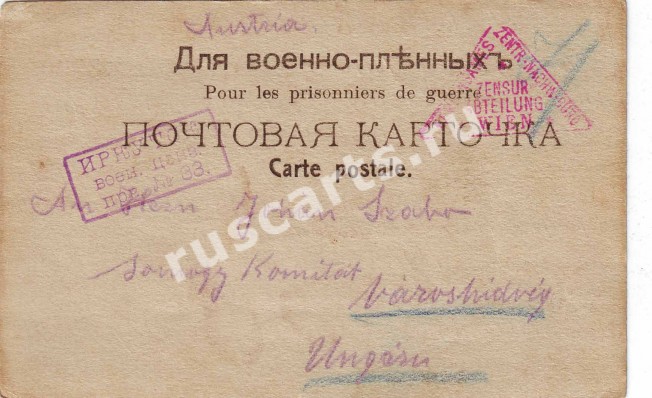 Austria.
Для военно-плѣнныхъ
Pour les prisonniers de guerre
ZENTR. NACHW. BURO
ZENSUR
ABTEILUNG
WIEN
ПОЧТОВАЯ КАРТОЧКА
Carte postale.
ИРКУ
воен. ценз.
№ 83.
An Herrn Szabo
Somogy Komitat
Városhidvég
Ungarn
ruscarts.ru